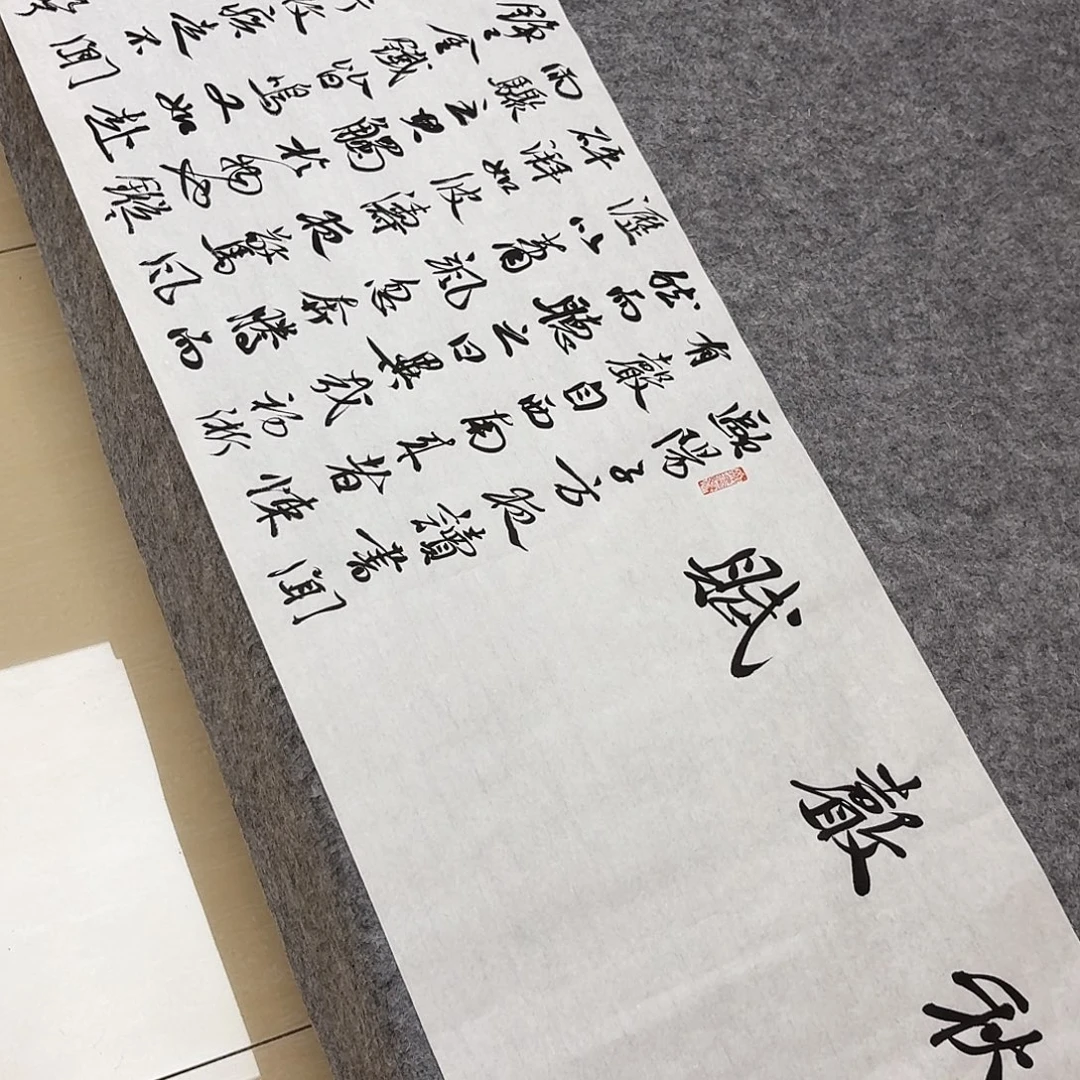 秋聲賦
歐陽子方夜讀書聞
有聲自西南來者悚
然而聽之曰異哉初淅
瀝以蕭颯忽奔騰而
砰湃如波濤夜驚風
雨驟至其觸於物也鏦
錚金鐵皆鳴又如赴
枚疾走不聞